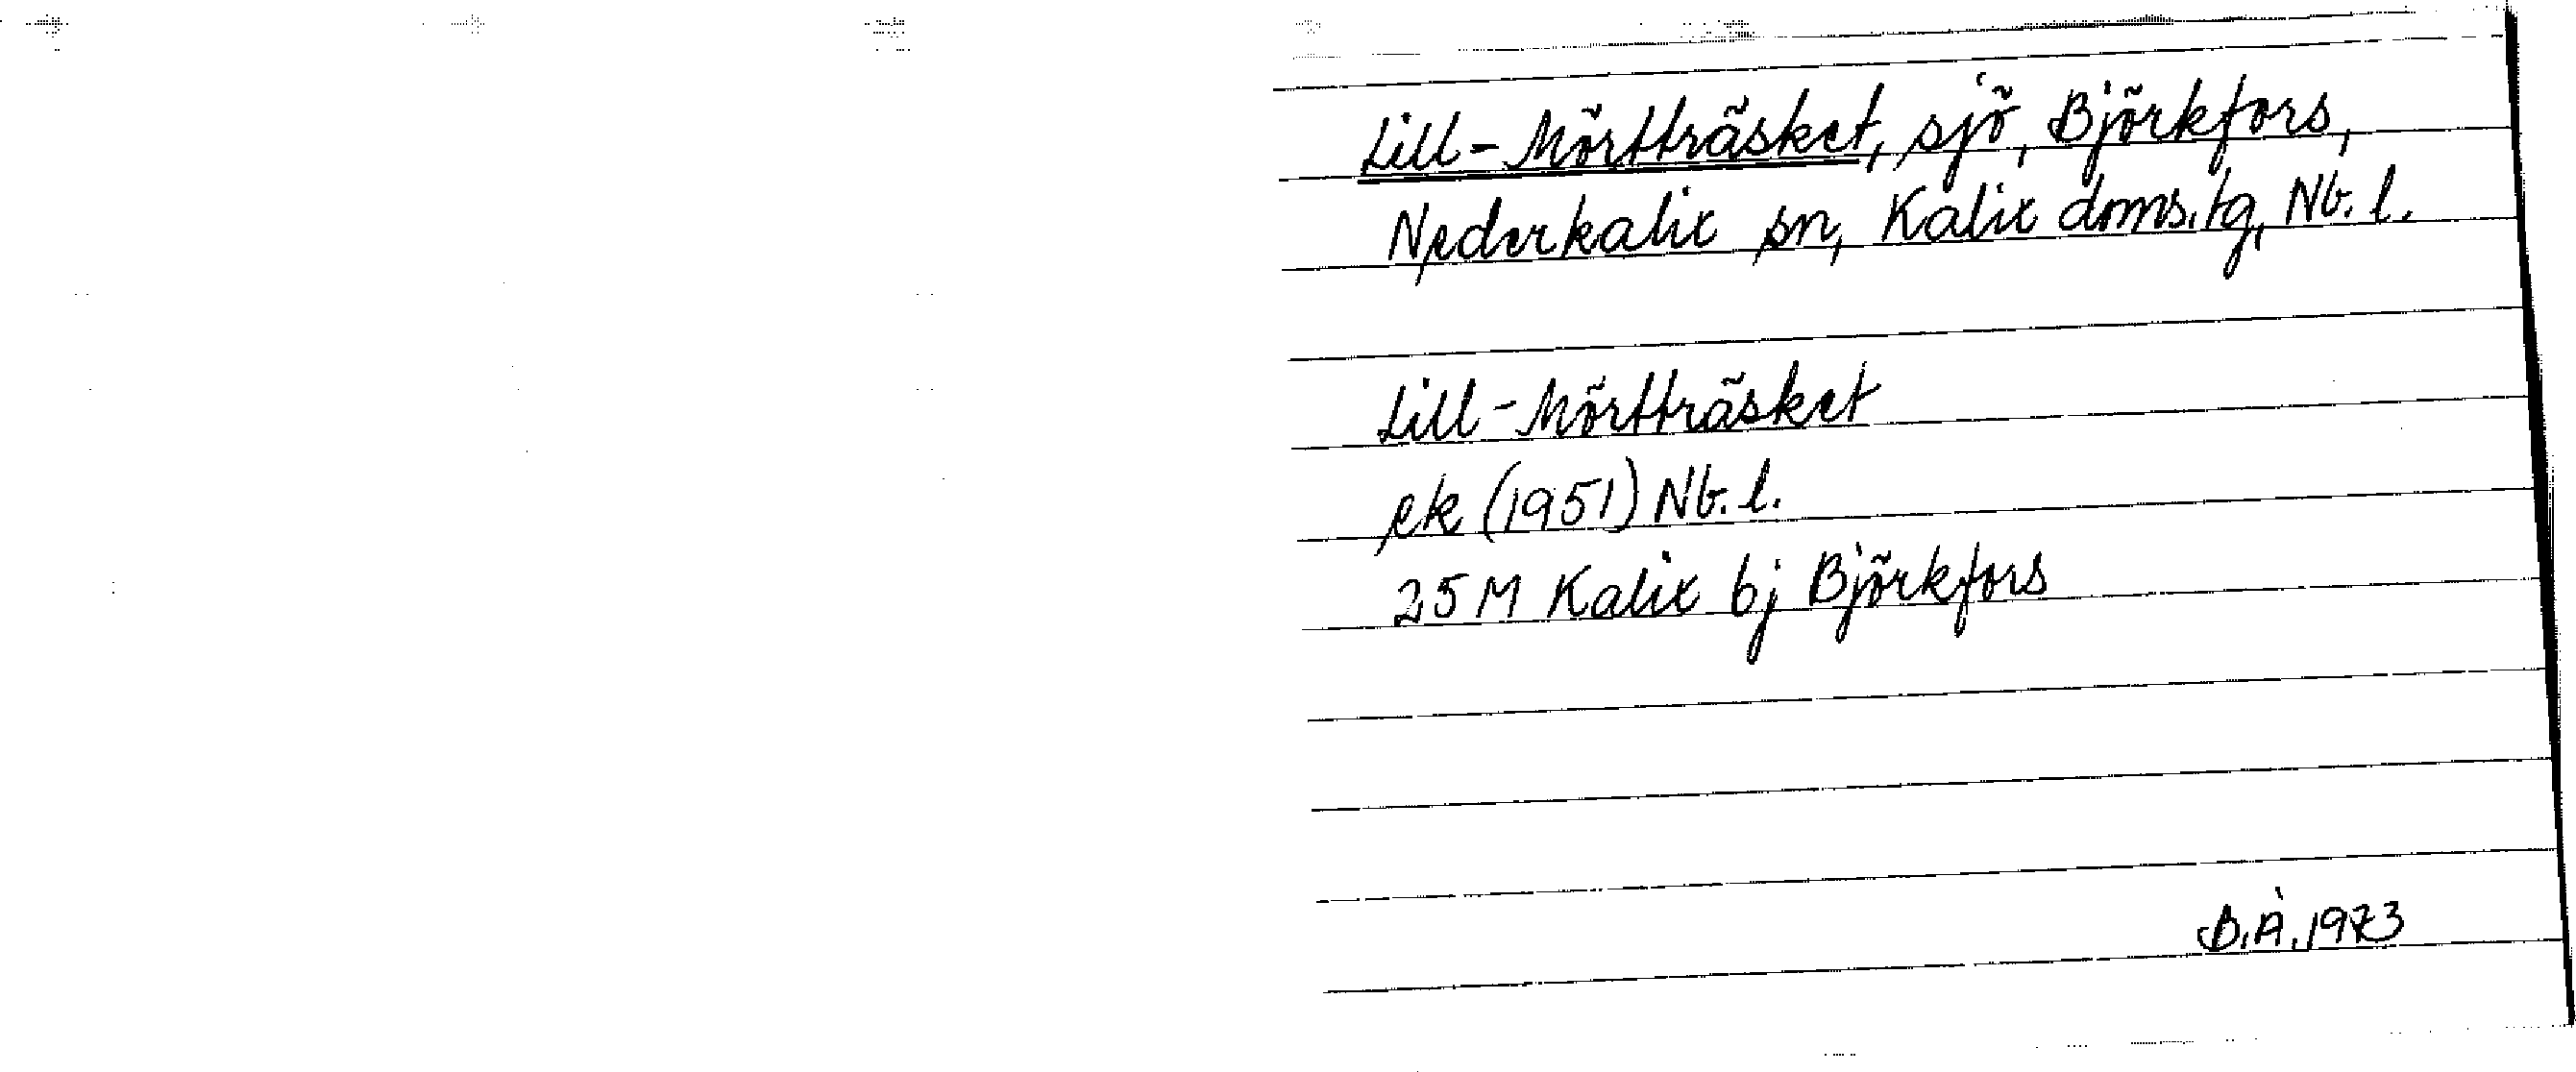 Lill-Mörtträsket, sjö, Björkfors,
Nederkalix sn, Kalix doms.tg, Nb. l.
Lill-Mörtträsket
ek (1951) Nb. l.
25M Kalix 6j Björkfors
B.Å. 1973